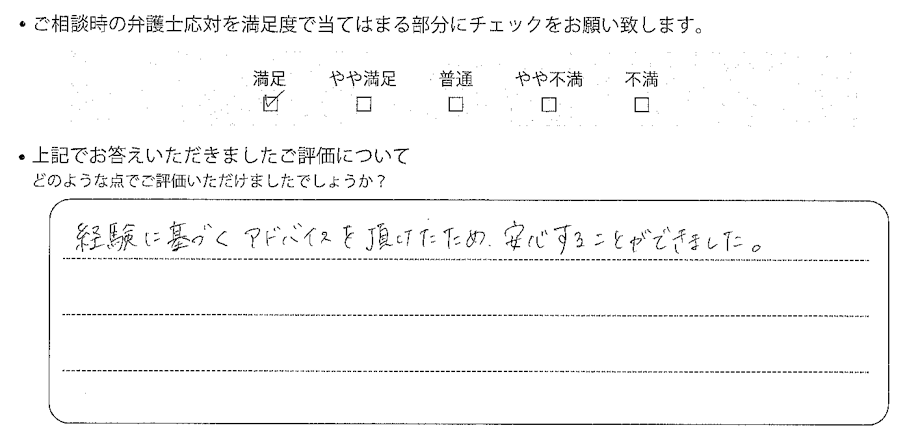 ・ご相談時の弁護士応対を満足度で当てはまる部分にチェックをお願い致します。
満足 やや満足 普通 やや不満 不満
☑ □ □ □ □
・上記でお答えいただきましたご評価について
どのような点でご評価いただけましたでしょうか？
経験に基づくアドバイスを頂けたため、安心することができました。